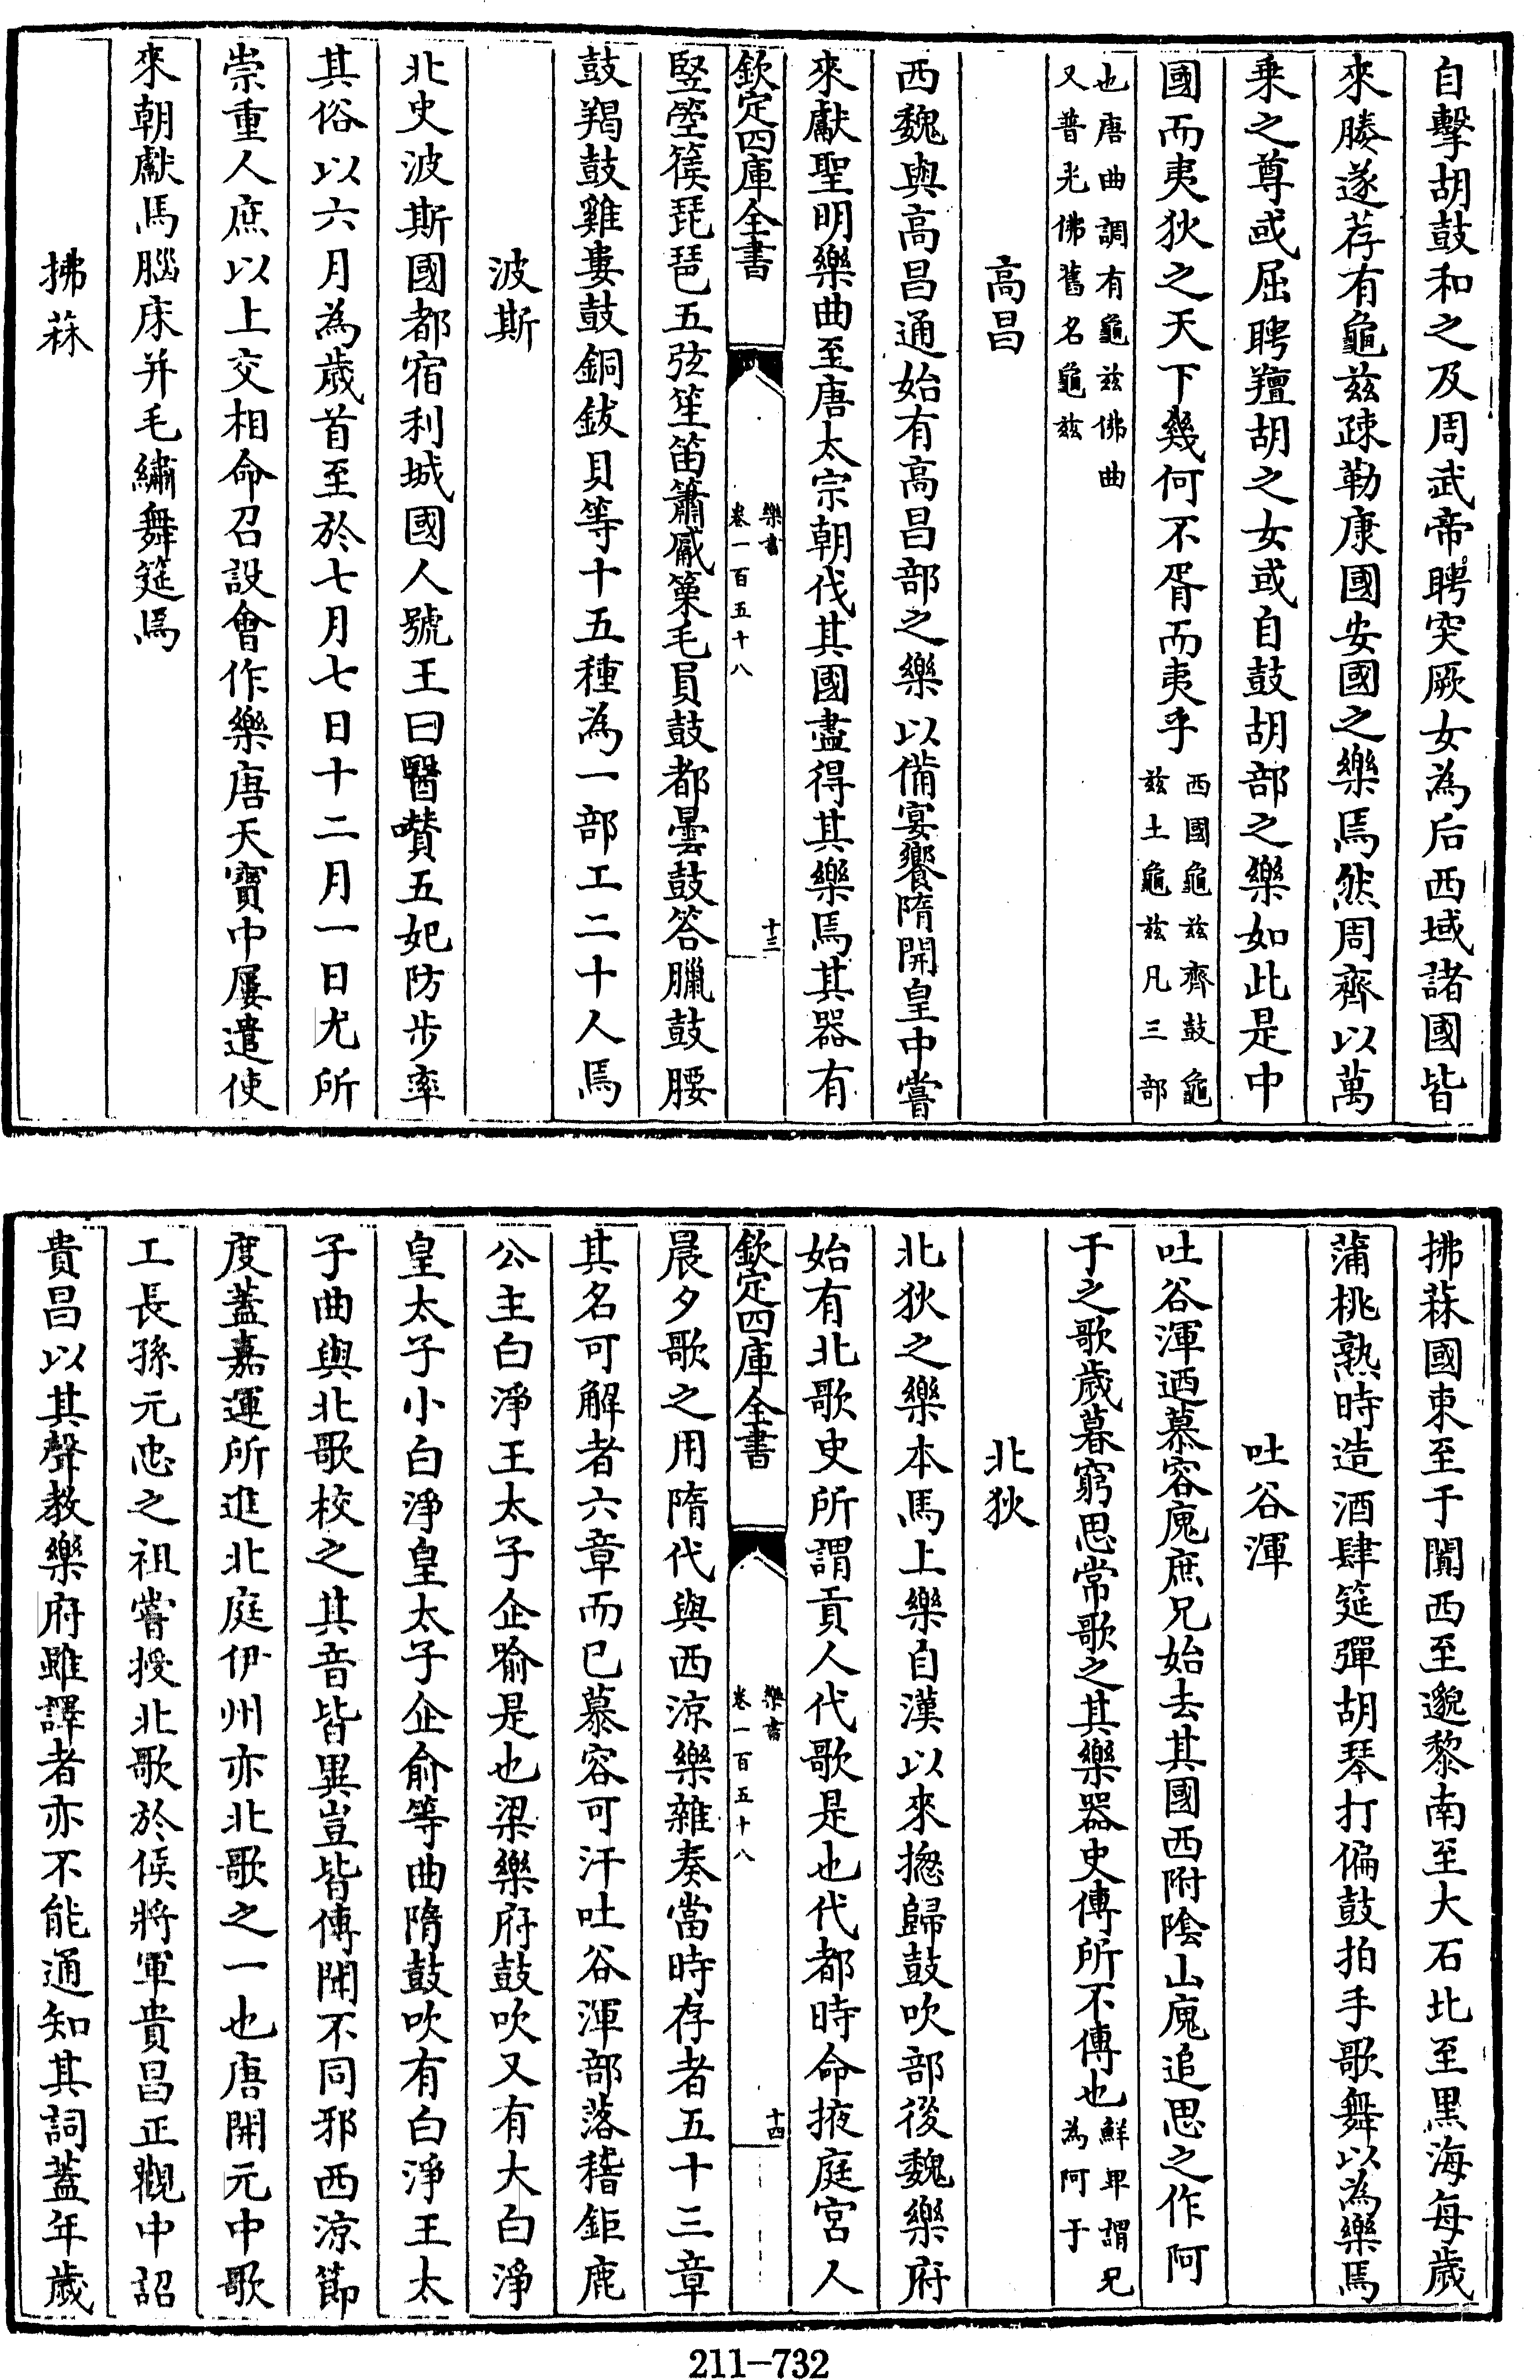 自擊胡鼓和之及周武帝聘突厥女為后西域諸國皆
來媵遂荐有龜茲疎勒康國安國之樂焉然周齊以萬
乗之尊或屈聘羶胡之女或自鼓胡部之樂如此是中
國而夷狄之天下幾何不胥而夷乎西國龜茲齊鼓龜
茲土龜茲凡三部
也唐曲調有龜茲佛曲
又普光佛舊名龜茲
高昌
西魏與高昌通始有高昌部之樂以備宴饗隋開皇中嘗
來獻聖明樂曲至唐太宗朝伐其國盡得其樂焉其器有
欽定四庫全書
樂書
卷一百五十八
十三
竪箜篌琵琶五弦笙笛簫觱篥毛員鼓都曇鼓答臘鼓腰
鼓羯鼓雞婁鼓銅鈸貝等十五種為一部工二十人焉
波斯
北史波斯國都宿利城國人號王曰醫囋五妃防步率
其俗以六月為歲首至於七月七日十二月一日尤所
崇重人庶以上交相命召設會作樂唐天寶中屢遣使
來朝獻馬腦床并毛繡舞筵焉
拂菻
拂菻國東至于闐西至邈黎南至大石北至黒海每歲
蒲桃熟時造酒肆筵彈胡琴打偏鼓拍手歌舞以為樂焉
吐谷渾
吐谷渾迺慕容廆庶兄始去其國西附陰山廆追思之作阿
于之歌歲暮窮思常歌之其樂器史傳所不傳也鮮卑謂兄
為阿于
北狄
北狄之樂本馬上樂自漢以來揔歸鼓吹部後魏樂府
始有北歌史所謂貢人代歌是也代都時命掖庭宮人
欽定四庫全書
樂書
卷一百五十八
十四
晨夕歌之用隋代與西涼樂雜奏當時存者五十三章
其名可解者六章而已慕容可汗吐谷渾部落稽鉅鹿
公主白淨王太子企喻是也梁樂府鼓吹又有大白淨
皇太子小白淨皇太子企俞等曲隋鼓吹有白淨王太
子曲與北歌校之其音皆異豈皆傳聞不同邪西涼節
度蓋嘉運所進北庭伊州亦北歌之一也唐開元中歌
工長孫元忠之祖嘗授北歌於侯將軍貴昌正觀中詔
貴昌以其聲教樂府雖譯者亦不能通知其詞蓋年歲
211-732